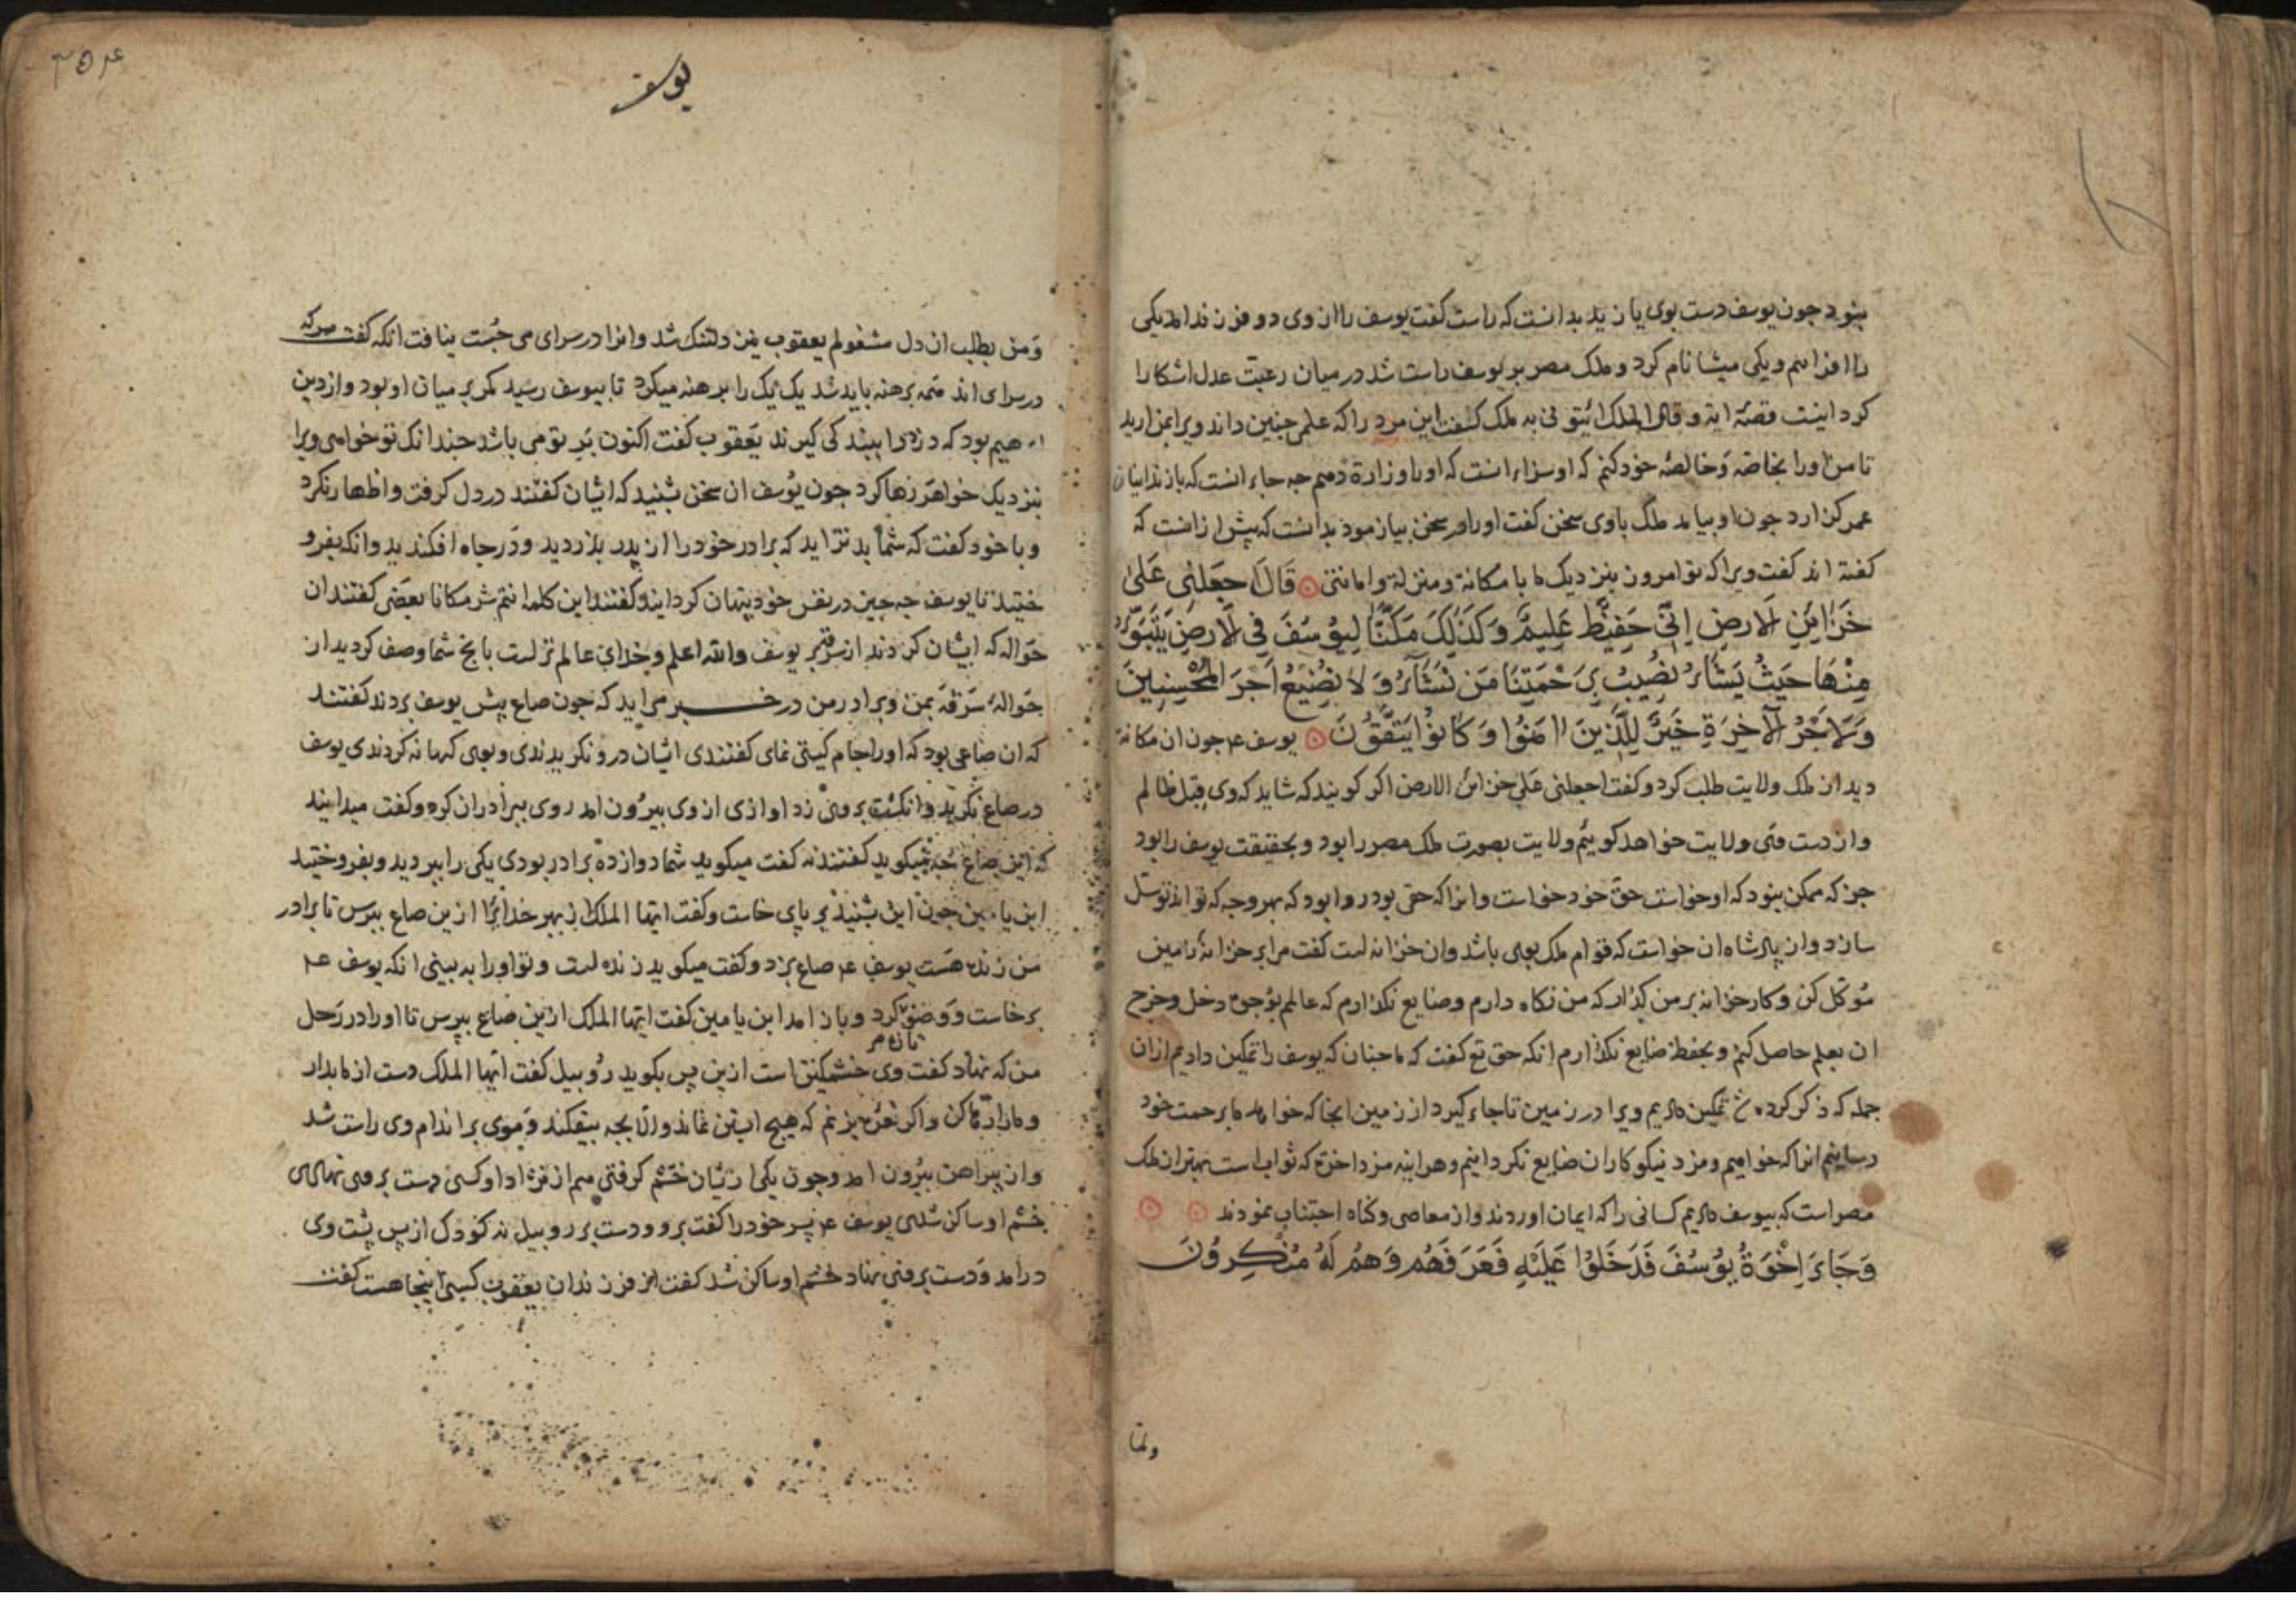 بنود جون یوسف دست بوی یا زید بدانست که راست کفت یوسف را از وی دو فرزند امد یکی
را افراهیم و یکی میشا نام کرد و ملک مصر بر یوسف راست شد در میان رعیت عدل اشکارا
کرد اینست قصّهٔ ایة و قال الملک ائتونی به ملک کفت این مرد را که علم جنین داند ویرا بمن ارید
تا من اورا بخاصّه و خالصهٔ خود کنم که او سزاء انست که اورا وزارة دهم جه جاء انست که باز ندانیان
عمر کزارد جون او بیامد ملک باوی سخن کفت اورا در سخن بیازمود بدانست که بیش از انست که
کفته اند کفت ویرا که تو امروز بنزدیک ما با مکانة و منزلة و امانتی قَالَ اجعَلنِی عَلیٰ
خَزَائِنِ الاَرضِ اِنِّی حَفِیظٌ عَلِیمٌ وَکَذٰلِکَ مَکَّنَّا لِیُوسُفَ فِی الاَرضِ یَتَبَوَّءُ
مِنْهَا حَیثُ یَشَآءُ نُصِیبُ بِرَحْمَتِنَا مَن نَشَآءُ وَلَا نُضِیعُ اَجرَ المُحْسِنِینَ
وَلَاَجْرُ الآخِرَةِ خَیرٌ لِلَّذِینَ اٰمَنُوا وَکَانُوا یَتَّقُونَ یوسف ع جون ان مکانة
دید از ملک ولایت طلب کرد و کفت اجعلنی علی خزائن الارض اکر کویند که شاید که وی قبل ظالم
و از دست وی ولایت خواهد کوئیم ولایت بصورت ملک مصر را بود و بحقیقت یوسف را بود
جز که ممکن بنود که او خواست حق خود خواست و انرا که حقی بود روا بود که بهر وجه که تواند توسّل
سازد و از پادشاه ان خواست که قوام ملک بوی باشد و ان خزانه است کفت مرا بر خزانهٔ زمین
موّکل کن و کار خزانه بر من کذار که من نکاه دارم و ضایع نکذارم که عالم بوجوه دخل و خرج
ان بعلم حاصل کنم و بحفظ ضایع نکذارم انکه حق تع کفت که ما جنان که یوسف را تمکین دادیم از ان
جمله که ذکر کرده تمکین دادیم ویرا در زمین تا جاء کیرد از زمین انجا که خواهد ما برحمت خود
رسانیم انرا که خواهیم و مزد نیکوکاران ضایع نکردانیم و هراینه مزد اخرة که ثواب است بهتر از ملک
مصر است که بیوسف دادیم کسانی را که ایمان اوردند و از معاصی و کناه اجتناب نمودند
وَجَاءَ اِخْوَةُ یُوسُفَ فَدَخَلُوا عَلَیْهِ فَعَرَفَهُم وَهُم لَهُ مُنْکِرُونَ
ولمّا
یوسف
۳۵۴
ومن بطلب ان دل مشغولم یعقوب نیز دلتنک شد و انرا در سرای می جُست نیافت انکه کفت هرکه
در سرای اند همه برهنه باید شد یک یک را برهنه میکرد تا بیوسف رسید کمر بر میان او بود و از دین
ابرهیم بود که دزد را ببند کی کیرند یعقوب کفت اکنون بر تو می باشد جندانک تو خواهی ویرا
بنزدیک خواهر رها کرد جون یوسف ان سخن بشنید که ایشان کفتند در دل کرفت و اظهار نکرد
و با خود کفت که شما بدتراید که برادر خود را از پدر بدزدید و در جاه افکندید وانکه بفرو
ختید تا یوسف جه جیز در نفس خود پنهان کردایند و کفتند این کلمه انتم شر مکانا بعضی کفتند ان
حواله که ایشان کردند از سرقه بر یوسف والله اعلم و خدای عالم تر است بانج شما وصف کردید از
حوالهٔ سَرَقَه بمن و برادر من در خبر می اید که جون صاع پیش یوسف بردند کفتند
که ان صاعی بود که اورا جام کیتی نمای کفتندی ایشان درو نکریدندی و بوی کهانه کردندی یوسف
در صاع نکرید و انکشت بر وی زد اوازی از وی بیرون امد روی ببرادران کرد و کفت میدانید
که این صاع جه میکوید کفتند نه کفت میکوید شما دوازده برادر بودی یکی را ببردید و بفروختید
ابن یامین جون این بشنید بر پای خاست و کفت ایّها الملک از بهر خدایرا ازین صاع بپرس تا برادر
من زنده هست یوسف ع صاع بزد و کفت میکوید زنده است و تو اورا به بینی انکه یوسف ع
برخاست و وضو کرد و باز امد ابن یامین کفت ایّها الملک ازین صاع بپرس تا اورا در رَحل
من که نهاد کفت وی خشمکین است ازین پس بکوید روبیل کفت ایّها الملک دست از ما بدار
و مارا رها کن و اکر نعره بزنم که هیج ابستن نماند والّا بجه بیفکند و موی بر اندام وی راست شد
و از پیراهن بیرون امد و جون یکی از یشان خشم کرفتی هم از نژاد او کسی دست بر وی نهادی
خشم او ساکن شدی یوسف ع پسر خود را کفت برو و دست بر روبیل نه کودک از پس پشت وی
درامد و دست بر وی نهاد خشم او ساکن شد کفت از فرزندان یعقوب کسی اینجا هست کفت